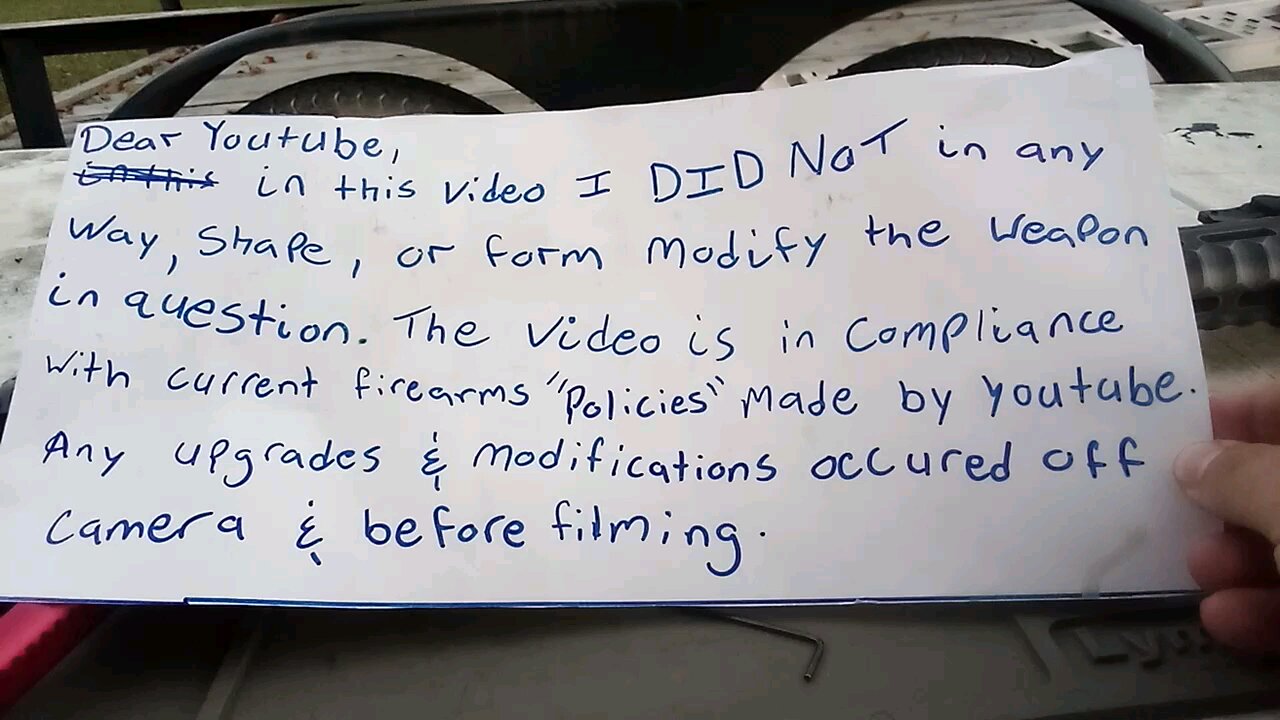 Dear Youtube,
in this in this video I DID NOT in any
way, shape, or form modify the weapon
in question. The video is in compliance
with current firearms "Policies" made by youtube.
Any upgrades & modifications occured off
camera & before filming.